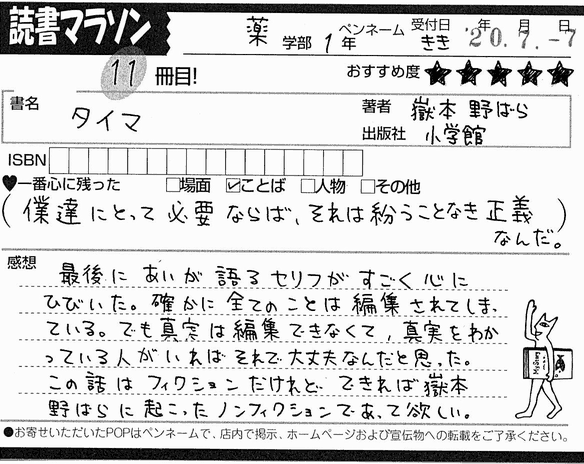 読書マラソン
薬 学部 1年
ペンネーム きき
受付日 '20.7.-7
年 月 日
11 冊目!
おすすめ度 ★★★★★
書名 タイマ
著者 嶽本 野ばら
出版社 小学館
ISBN
♥一番心に残った □場面 ☑ことば □人物 □その他
(僕達にとって必要ならば、それは紛うことなき正義
なんだ。)
感想
最後に あいが 語るセリフが すごく 心に
ひびいた。確かに 全てのことは 編集 されてしま
ている。でも真実は編集できなくて、真実をわか
っている人がいればそれで大丈夫なんだと思った。
この話は フィクションだけれど できれば嶽本
野ばらに起こったノンフィクションであって欲しい。
●お寄せいただいたPOPはペンネームで、店内で掲示、ホームページおよび宣伝物への転載をご了承ください。